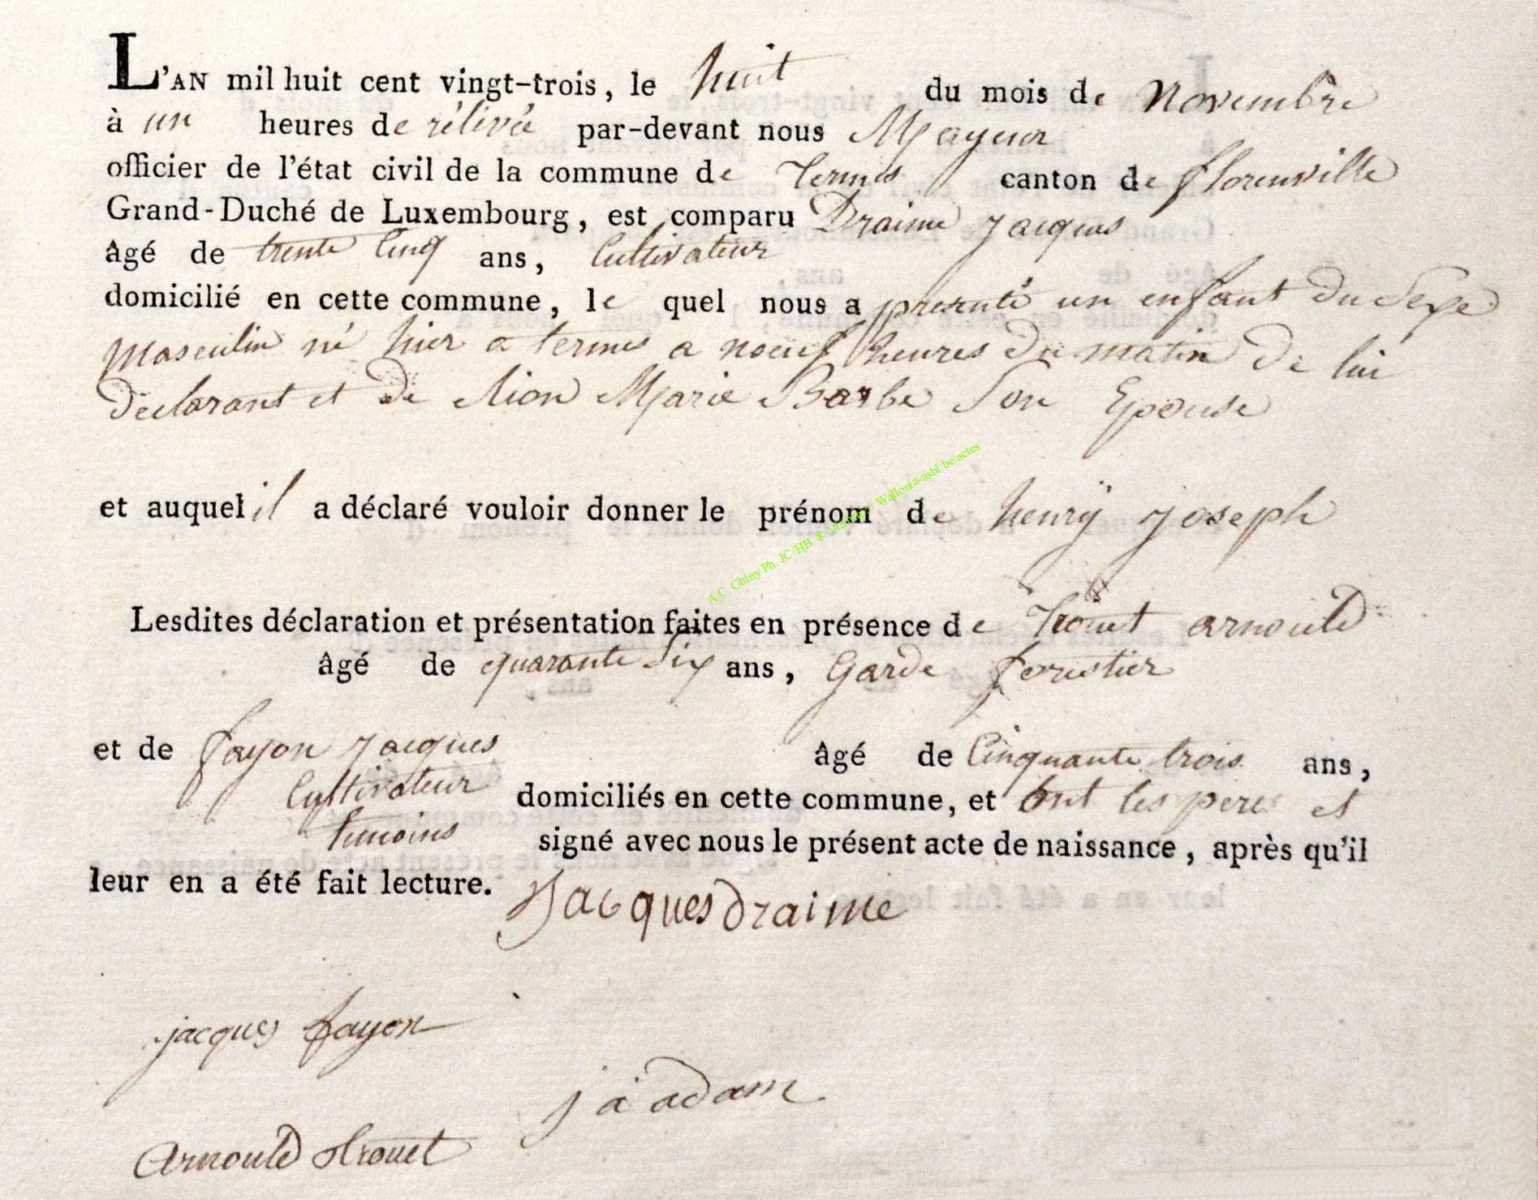 L'AN mil huit cent vingt-trois, le huit du mois de Novembre
à un heures de rélévée par-devant nous Mayeur
officier de l'état civil de la commune de termes canton de florenville
Grand-Duché de Luxembourg, est comparu Draime jacques
âgé de trente cinq ans, Cultivateur
domicilié en cette commune, le quel nous a presenté un enfant du Sexe
Masculin né hier a termes a noeuf heures du matin de lui
declarant et de Lion Marie Barbe Son Epouse
et auquel il a déclaré vouloir donner le prénom de henrÿ joseph
Lesdites déclaration et présentation faites en présence de trouet arnould
âgé de quarante Six ans, Garde forestier
et de fayon jacques âgé de Cinquante trois ans,
Cultivateur domiciliés en cette commune, et ont les peres et
temoins signé avec nous le présent acte de naissance, après qu'il
leur en a été fait lecture. Jacques draime
jacques fayon
j a adam
Arnould trouet
A.C. Chiny Ph. JC-HB